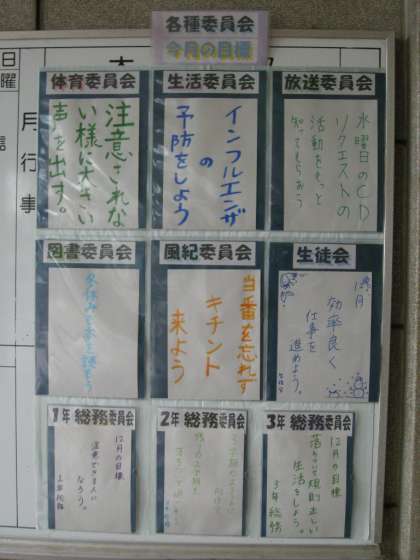 各種委員会
今月の目標
日
曜
月行事
体育委員会
注意されな
い様に大きい
声を出す。
生活委員会
インフルエンザ
の
予防をしよう
放送委員会
水曜日のCD
リクエストの
活動をもっと
知ってもらおう
図書委員会
冬休みも本を読もう
風紀委員会
当番を忘れず
キチント
来よう
生徒会
1月
効率良く
仕事を
進めよう。
1年 総務委員会
12月の目標
なろう。
2年 総務委員会
3年 総務委員会
12月の目標
落ちついて規則正しい
生活をしよう。
3年総務